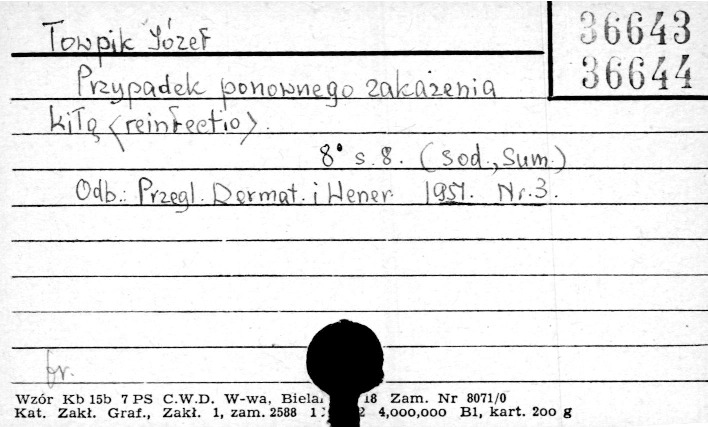 Towpik Józef
36643
36644
Przypadek ponownego zakażenia
kiłą <reinfectio>.
8° s. 8. (Sod., Sum.)
Odb.: Przegl. Dermat. i Wener. 1951. Nr. 3.
fr.
Wzór Kb 15b 7 PS C.W.D. W-wa, Biela 18 Zam. Nr 8071/0
Kat. Zakł. Graf., Zakł. 1, zam. 2588 4,000,000 B1, kart. 200 g